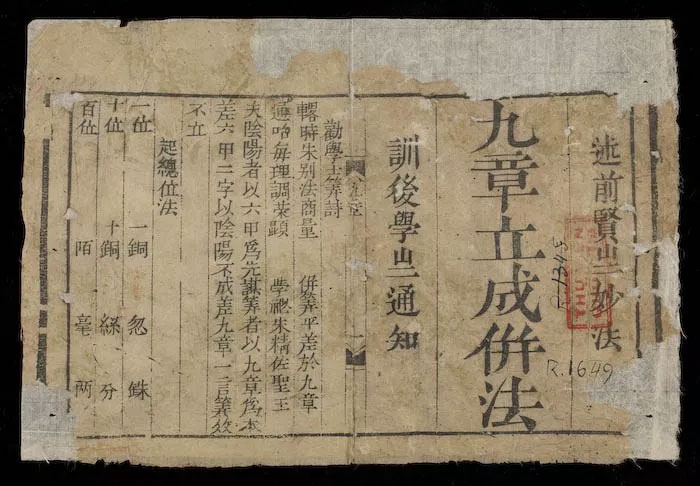 述前賢㞢玅法
九章立成併法
訓後學㞢通知
R.1345
R.1649
勸學士筭詩
時朱別法商量 併筭平差於九章
通咍每理調英顕 學祕朱精佐聖王
夫陰陽者以六甲爲先謀筭者以九章爲本
差六甲二字以陰陽不成差九章一言筭效
不立
起總位法
一位 一銅 忽 銖
十位 十銅 絲 分
百位 陌 毫 兩